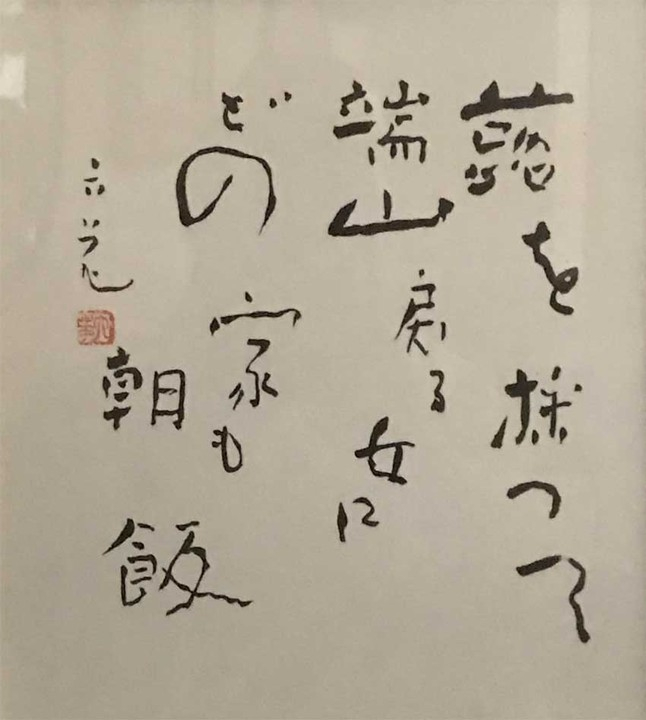 蕗を採つて
端山戻る女に
どの家も
朝飯